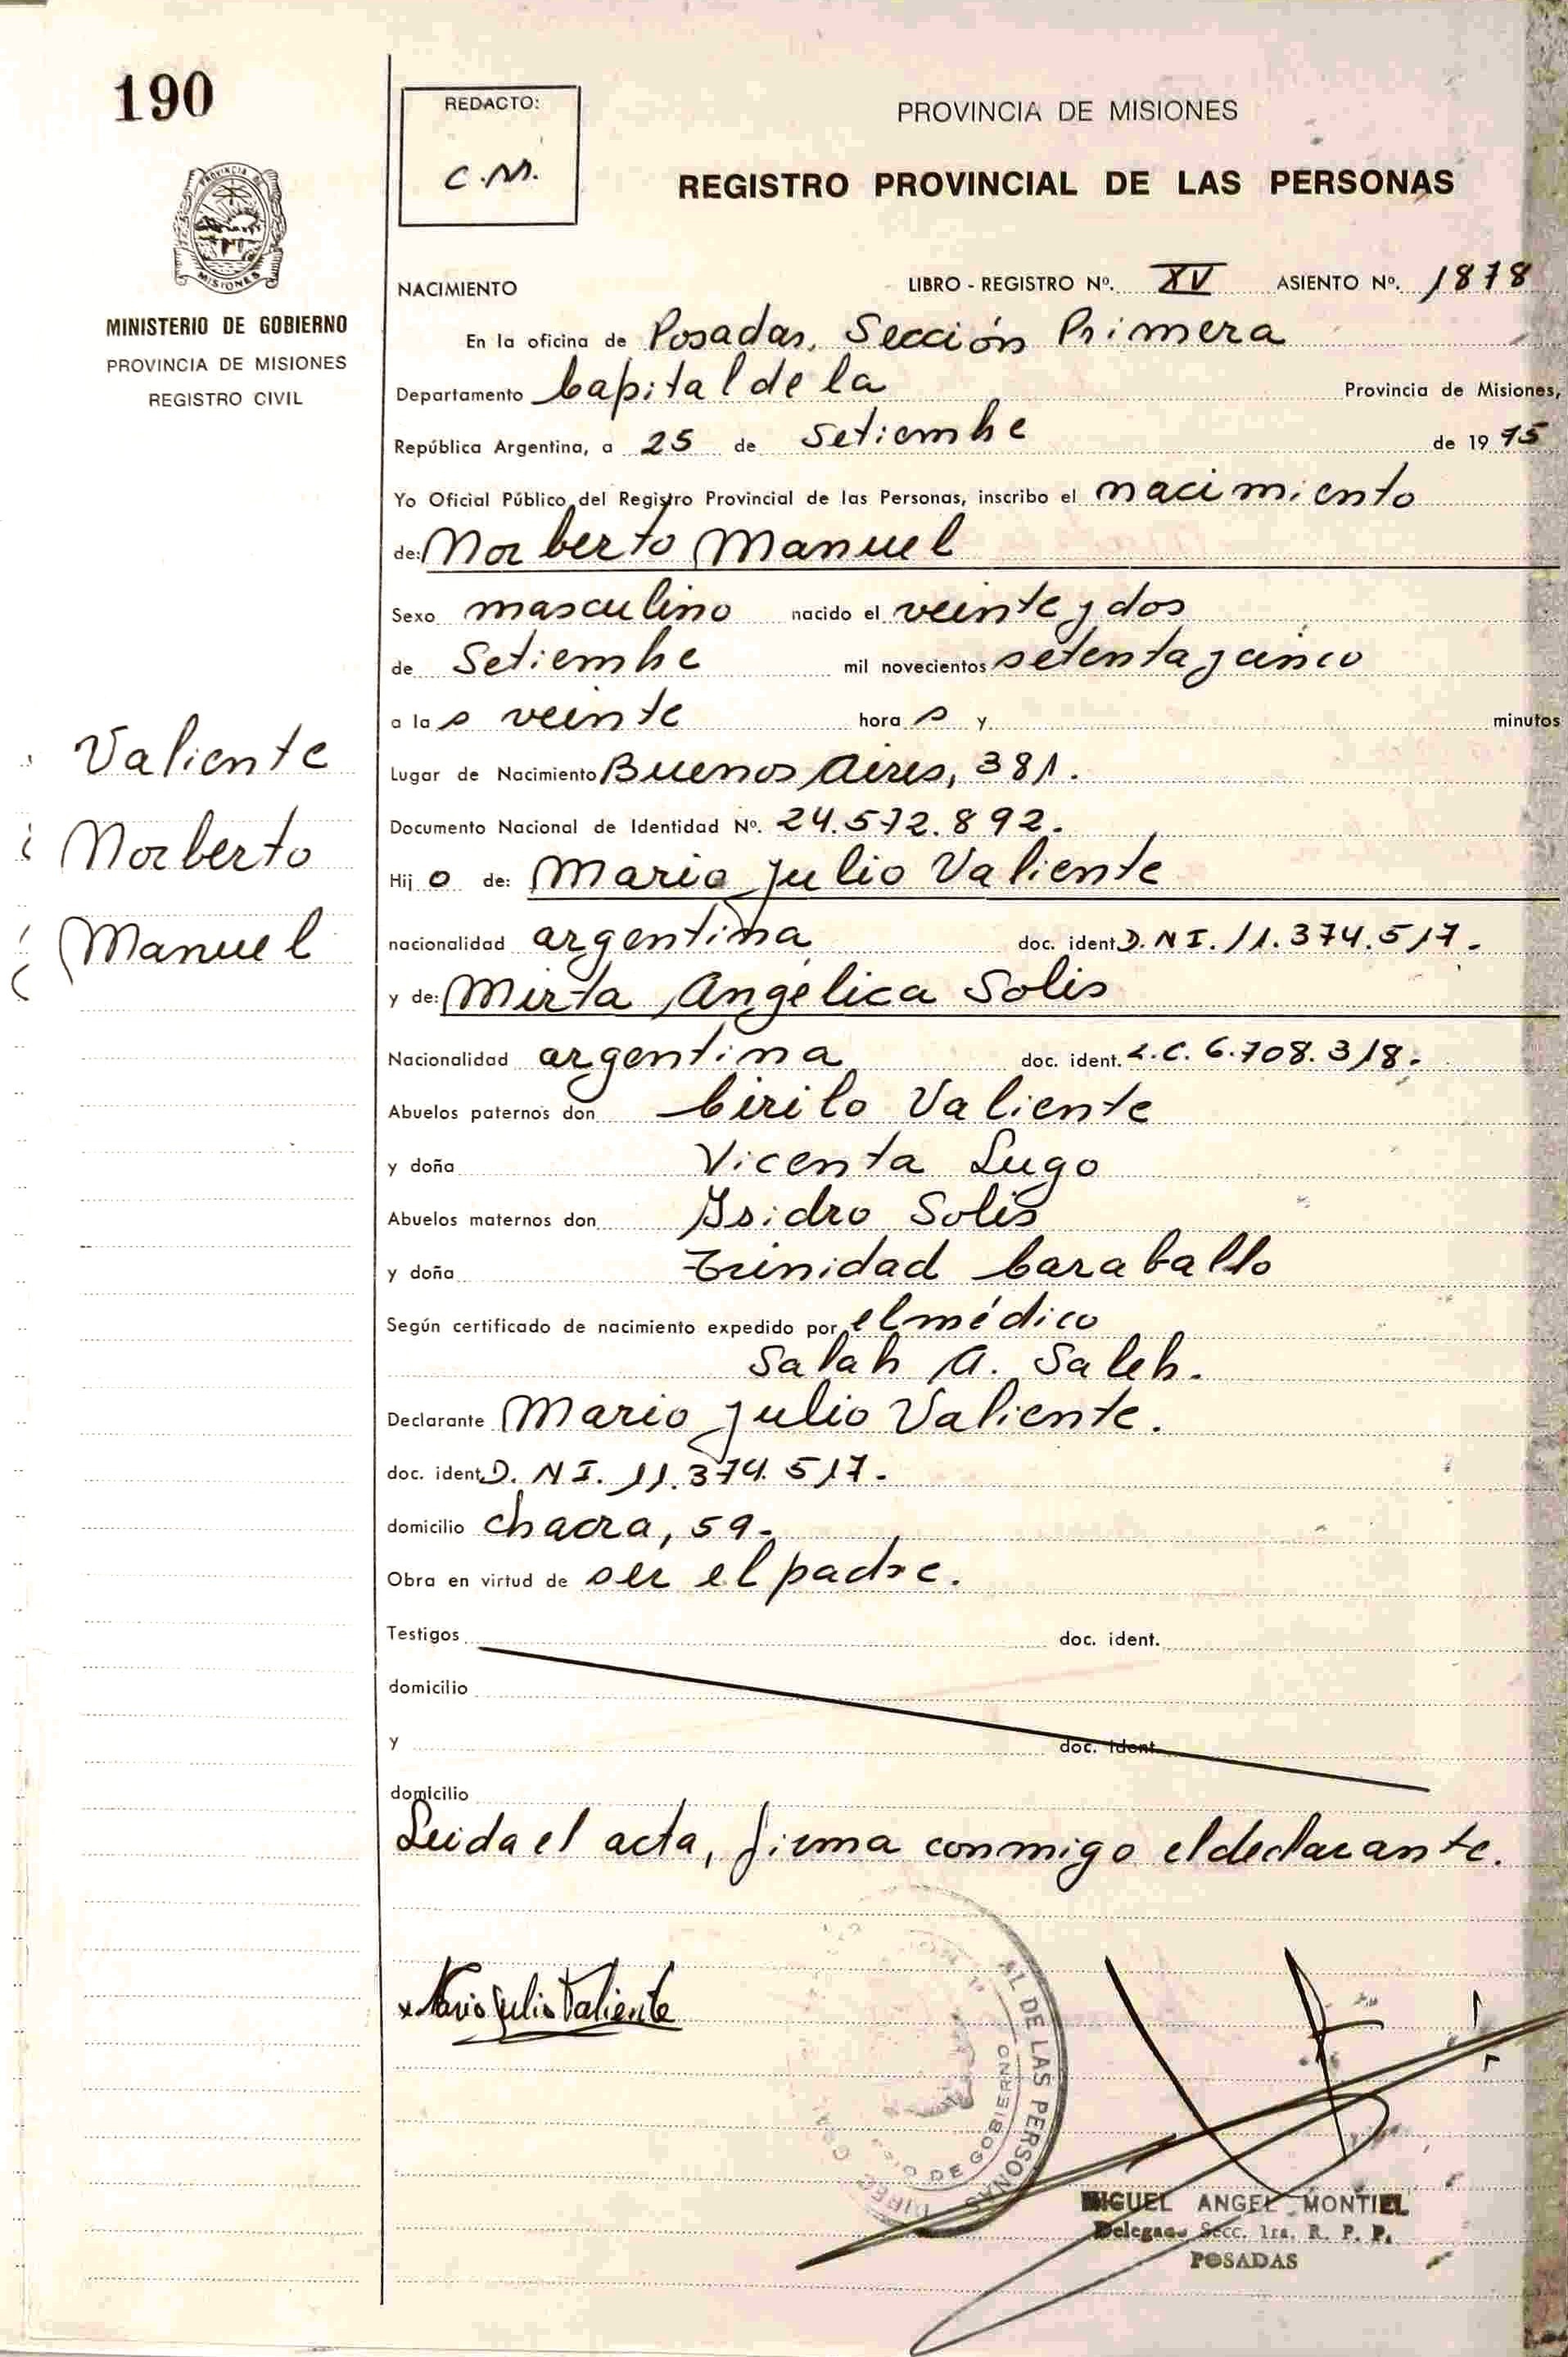 190
REDACTO:
C.M.
PROVINCIA DE MISIONES
REGISTRO PROVINCIAL DE LAS PERSONAS
PROVINCIA DE
MISIONES
MINISTERIO DE GOBIERNO
PROVINCIA DE MISIONES
REGISTRO CIVIL
NACIMIENTO LIBRO - REGISTRO Nº. XV ASIENTO Nº. 1878
En la oficina de Posadas, Sección Primera
Departamento Capital de la Provincia de Misiones,
República Argentina, a 25 de Setiembre de 1975
Yo Oficial Público del Registro Provincial de las Personas, inscribo el nacimiento
de: Norberto Manuel
Sexo masculino nacido el veinte y dos
de Setiembre mil novecientos setenta y cinco
a las veinte horas y minutos
Valiente
Norberto
Manuel
Lugar de Nacimiento Buenos Aires, 381.
Documento Nacional de Identidad Nº. 24.572.892.
Hijo de: Mario Julio Valiente
nacionalidad argentina doc. ident. D.N.I. 11.374.517.
y de: Mirta Angélica Solis
Nacionalidad argentina doc. ident. L.C. 6.708.318.
Abuelos paternos don Cirilo Valiente
y doña Vicenta Lugo
Abuelos maternos don Isidro Solis
y doña Trinidad Caraballo
Según certificado de nacimiento expedido por el médico
Salah A. Saleh.
Declarante Mario Julio Valiente.
doc. ident. D.N.I. 11.374.517.
domicilio chacra, 59.
Obra en virtud de ser el padre.
Testigos doc. ident.
domicilio
y doc. ident.
domicilio
Leida el acta, firma conmigo el declarante.
x Mario Julio Valiente
AL DE LAS PERSONAS
DE GOBIERNO
MIGUEL ANGEL MONTIEL
Delegado Secc. 1ra. R. P. P.
POSADAS